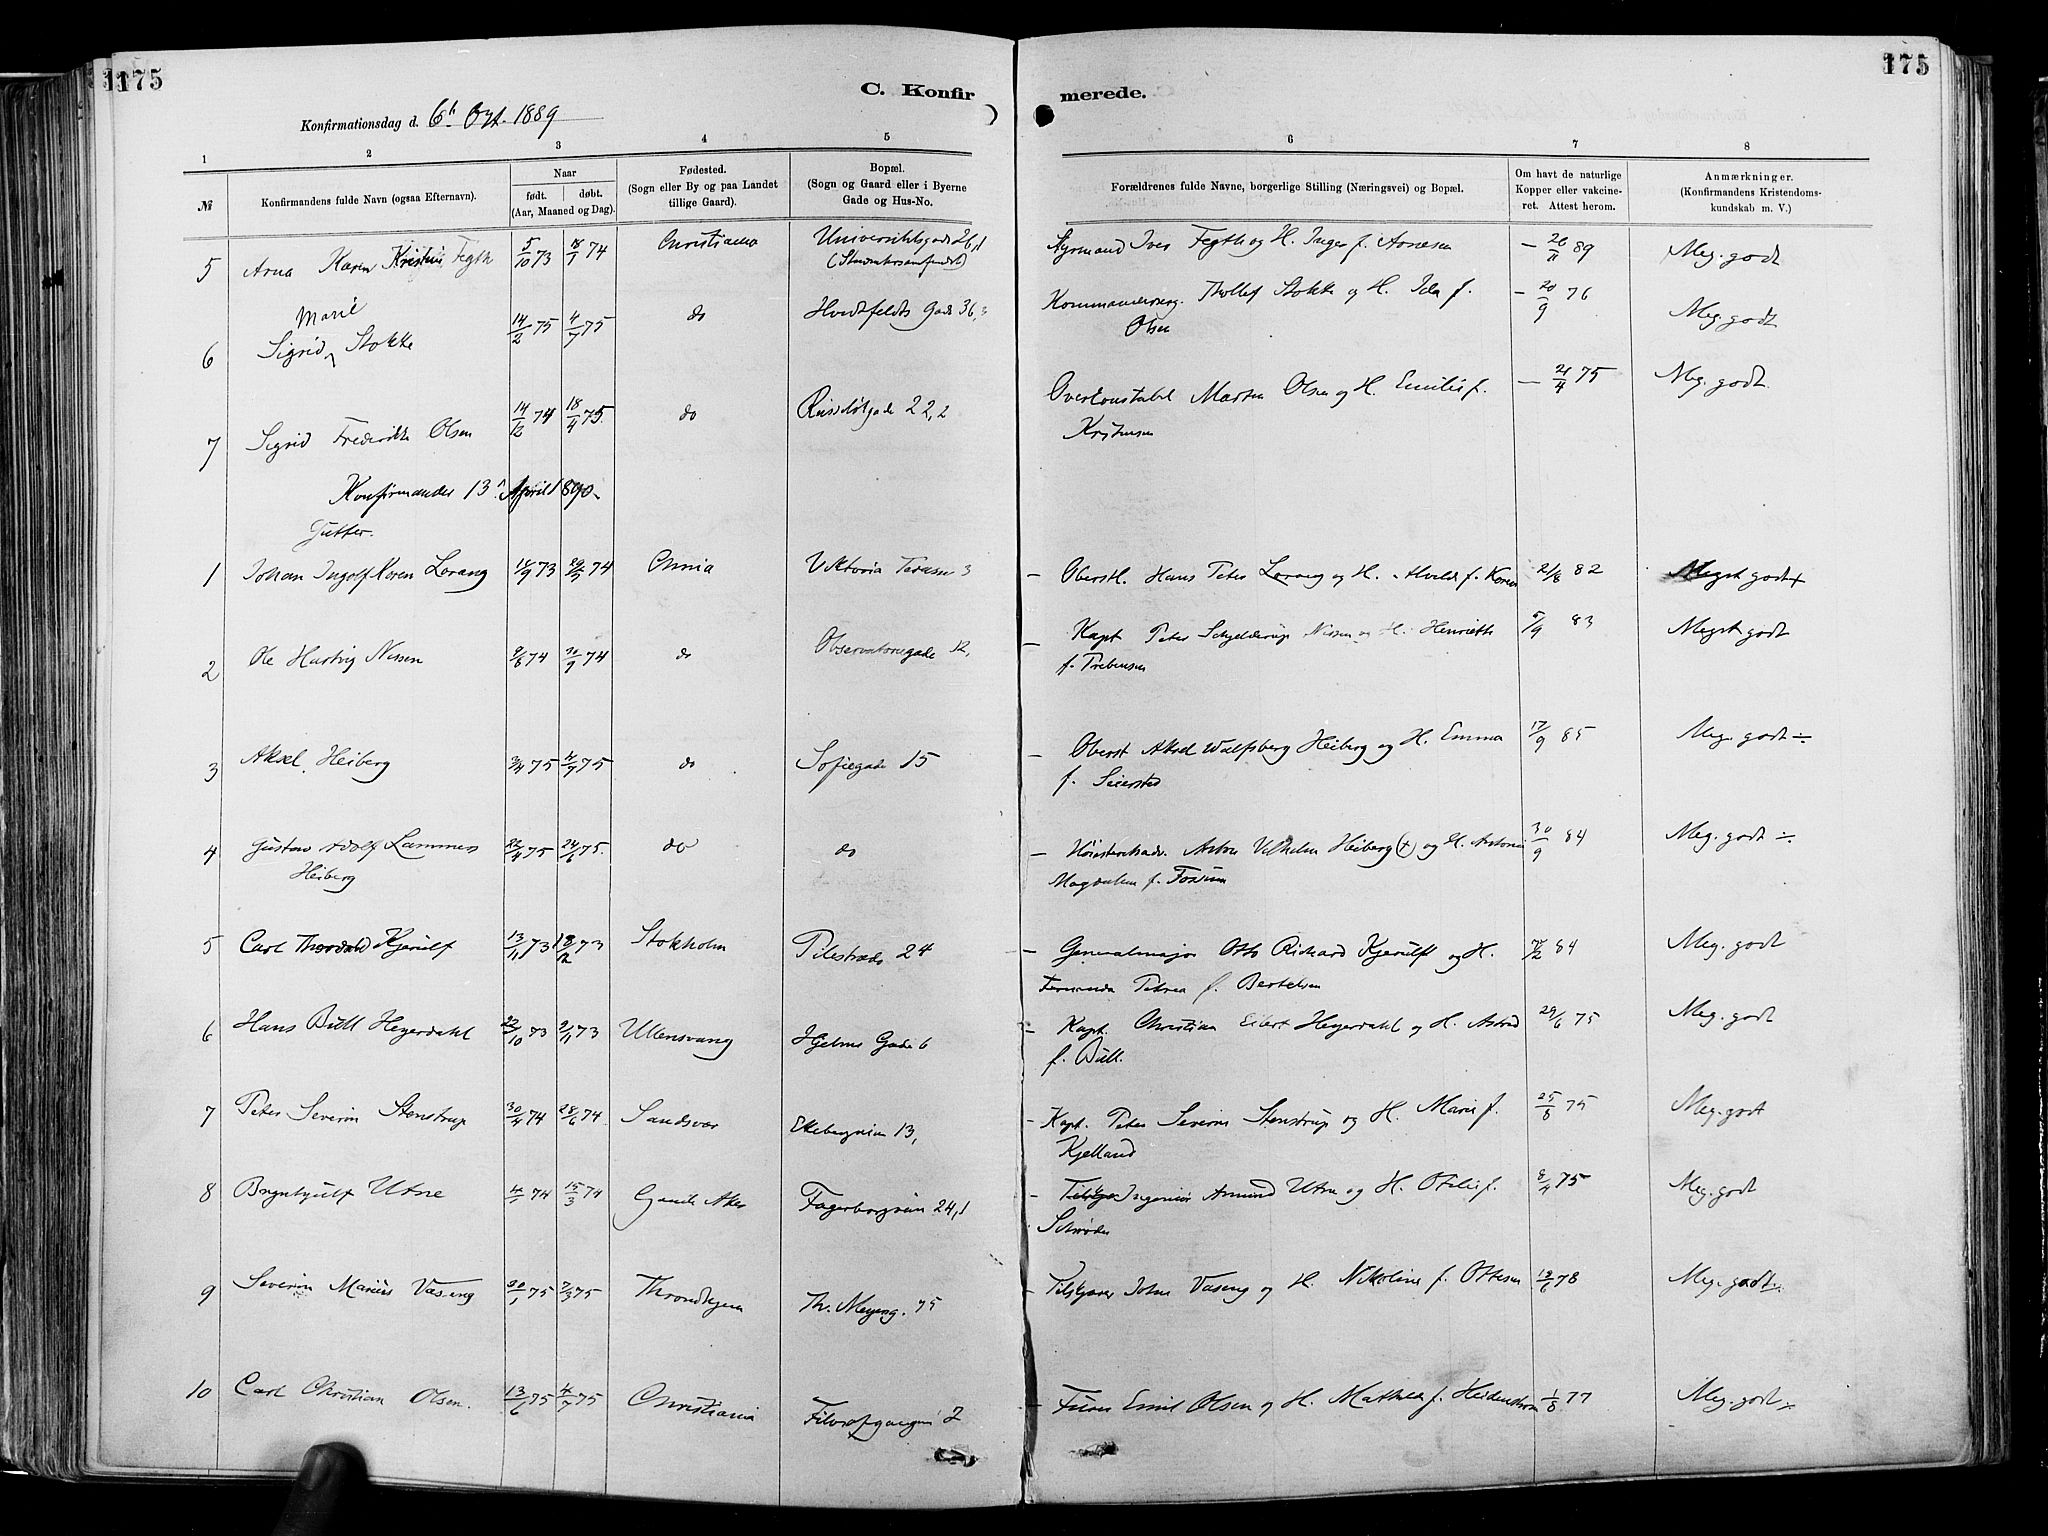 175
175
C. Konfir merede.
Konfirmationsdag d. 6te Okt. 1889
1 2 3 4 5 6 7 8
№
Konfirmandens fulde Navn (ogsaa Efternavn).
Naar
født. døbt.
(Aar, Maaned og Dag).
Fødested.
(Sogn eller By og paa Landet
tillige Gaard).
Bopæl.
(Sogn og Gaard eller i Byerne
Gade og Hus-No.
Forældrenes fulde Navne, borgerlige Stilling (Næringsvei) og Bopæl.
Om havt de naturlige
Kopper eller vakcine-
ret. Attest herom.
Anmærkninger.
(Konfirmandens Kristendoms-
kundskab m. V.)
5 Karen Kristine Fegth 5/10 73 18/1 74 Christiania Universitetsgade 26,1 Styrmand Iver Fegth og H. Inger f. Arnesen - 26/11 89 Meg. godt
(Studentersamfundet)
Marie
6 Sigrid Stokke 14/2 75 4/7 75 do Hvidtfeldts Gade 36,3 Thollef Stokke og H. Ida f. - 20/9 76 Meg. godt
Olsen
7 Sigrid Frederikke Olsen 14/12 74 18/4 75. do 22,2 Overkonstabel Olsen og H. Emilie f. - 21/4 75 Meg. godt
Kristensen
Konfirmander 13. April 1890.
Gutter.
1 Johan Ingolf Koren Lorang 73 74 Chnia Viktoria Terasse 3 - Oberstl. Hans Peter Lorang og H. f. Koren 21/8 82 Meget godt +
2 Ole Hartvig Nissen 74 74 do Observatoriegade 12, - Kapt. Peter Schjelderup Nissen og H. Henriette 5/9 83 Meget godt
f.
3 Aksel Heiberg 75 4/7 75 do Sofiegade 15 - Oberst Aksel Heiberg og H. Emma 17/9 85 Meg. godt ÷
f. Seiersted
4 Gustav Adolf Lammers 22/4 75 24/6 75. do do - Vilhelm Heiberg (+) og H. 30/9 84 Meg. godt ÷
Heiberg Magdalene f.
5 Carl Kjerulf 13/11 73 73 Stokholm Pilestræde 24 - Generalmajor Otto Richard Kjerulf og H. 84 Meg. godt
Petrea f. Bertelsen
6 Hans Bull Heyerdahl 22/10 73 9/11 73 Ullensvang Hjelms Gade 6 - Kapt. Christian Eilert Heyerdahl og H. Astrid 29/6 75 Meg. godt
f. Bull.
7 Peter Severin Stenstrup 30/4 74 28/6 74 Sandsvær 13, - Kapt. Peter Severin Stenstrup og H. Marie f. 25/8 75 Meg. godt
Kjelland
8 Brynhjulf Utne 74 15/3 74 Gamle Aker Fagerborgveien 24,1 - Ingeniør Amund Utne og H. Otilie f. 75 Meg. godt
Schrøder
9 Severin Marius Vaseng 30/1 75 7/3 75 Throndhjem Th. Meyersg. 75 - Vaseng og H. Nikoline f. Ottesen 78 Meg. godt ÷
10 Carl Christian Olsen. 13/6 75 4/7 75 Christiania Filosofgangen 2 - Furer Emil Olsen og H. Mathilde f. Heidenstrøm 1/8 77 Meg. godt ÷